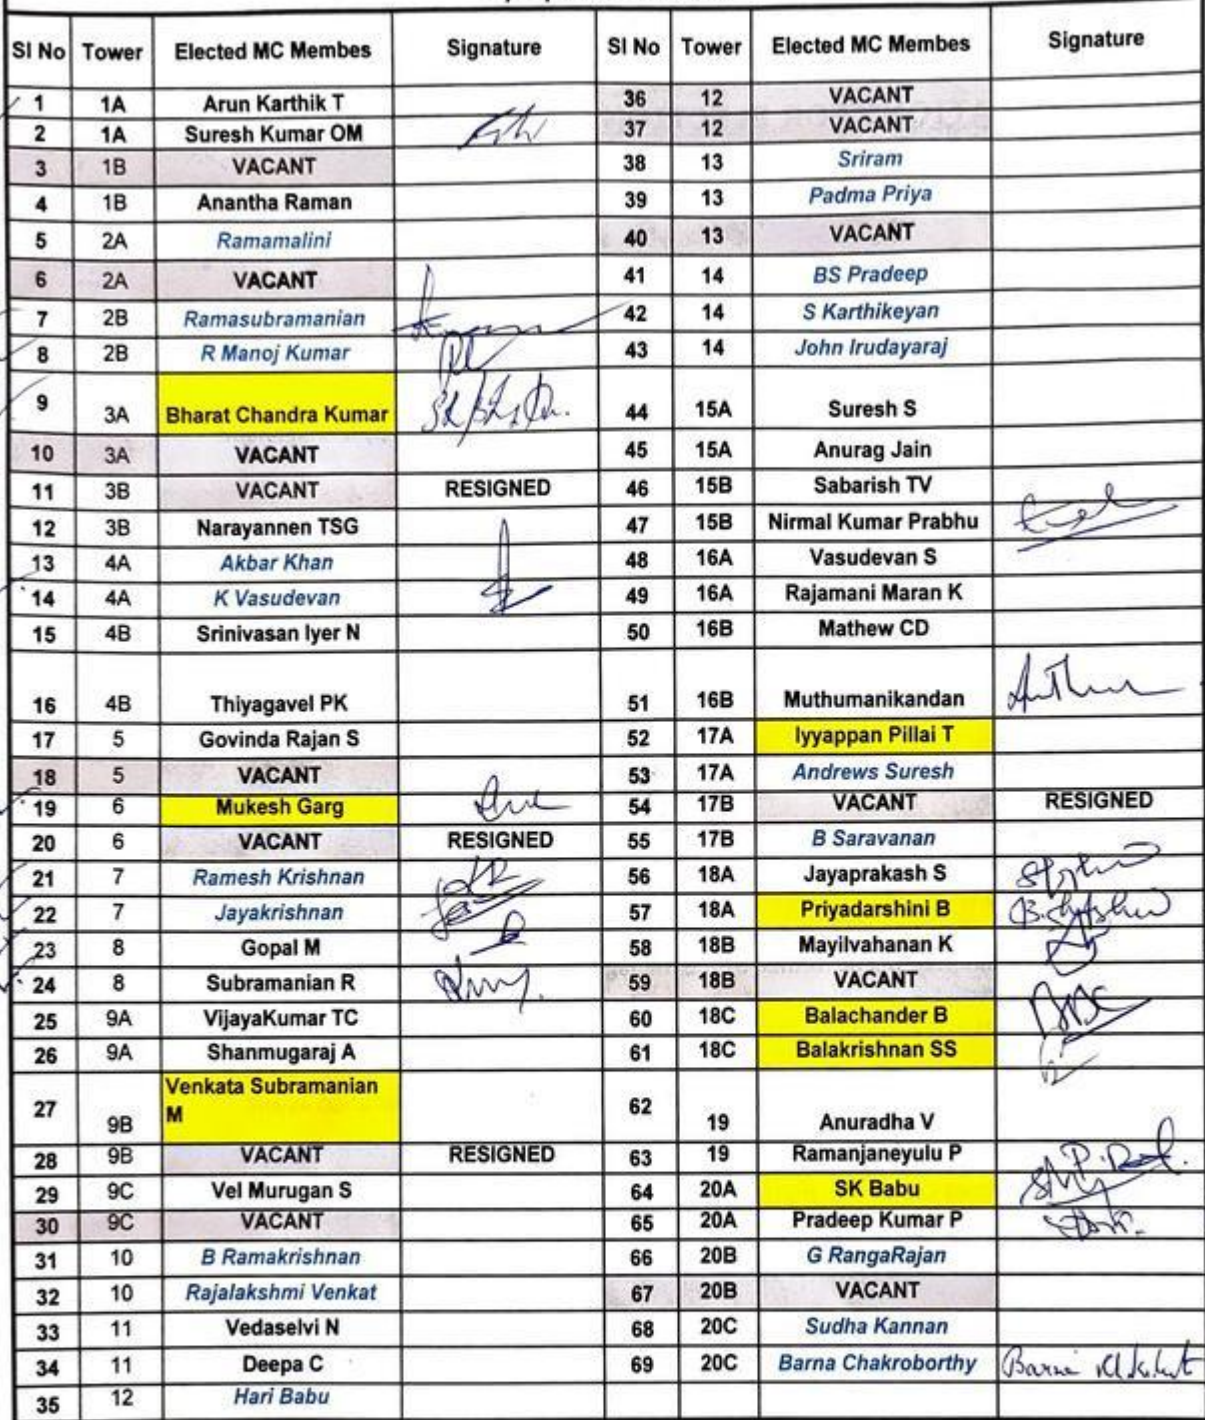 SI No Tower Elected MC Membes Signature SI No Tower Elected MC Membes Signature
1 1A Arun Karthik T 36 12 VACANT
2 1A Suresh Kumar OM 37 12 VACANT
3 1B VACANT 38 13 Sriram
4 1B Anantha Raman 39 13 Padma Priya
5 2A Ramamalini 40 13 VACANT
6 2A VACANT 41 14 BS Pradeep
7 2B Ramasubramanian 42 14 S Karthikeyan
8 2B R Manoj Kumar 43 14 John Irudayaraj
9 3A Bharat Chandra Kumar 44 15A Suresh S
10 3A VACANT 45 15A Anurag Jain
11 3B VACANT RESIGNED 46 15B Sabarish TV
12 3B Narayannen TSG 47 15B Nirmal Kumar Prabhu
13 4A Akbar Khan 48 16A Vasudevan S
14 4A K Vasudevan 49 16A Rajamani Maran K
15 4B Srinivasan Iyer N 50 16B Mathew CD
16 4B Thiyagavel PK 51 16B Muthumanikandan
17 5 Govinda Rajan S 52 17A Iyyappan Pillai T
18 5 VACANT 53 17A Andrews Suresh
19 6 Mukesh Garg 54 17B VACANT RESIGNED
20 6 VACANT RESIGNED 55 17B B Saravanan
21 7 Ramesh Krishnan 56 18A Jayaprakash S
22 7 Jayakrishnan 57 18A Priyadarshini B
23 8 Gopal M 58 18B Mayilvahanan K
24 8 Subramanian R 59 18B VACANT
25 9A VijayaKumar TC 60 18C Balachander B
26 9A Shanmugaraj A 61 18C Balakrishnan SS
27 9B Venkata Subramanian M 62 19 Anuradha V
28 9B VACANT RESIGNED 63 19 Ramanjaneyulu P
29 9C Vel Murugan S 64 20A SK Babu
30 9C VACANT 65 20A Pradeep Kumar P
31 10 B Ramakrishnan 66 20B G RangaRajan
32 10 Rajalakshmi Venkat 67 20B VACANT
33 11 Vedaselvi N 68 20C Sudha Kannan
34 11 Deepa C 69 20C Barna Chakroborthy
35 12 Hari Babu